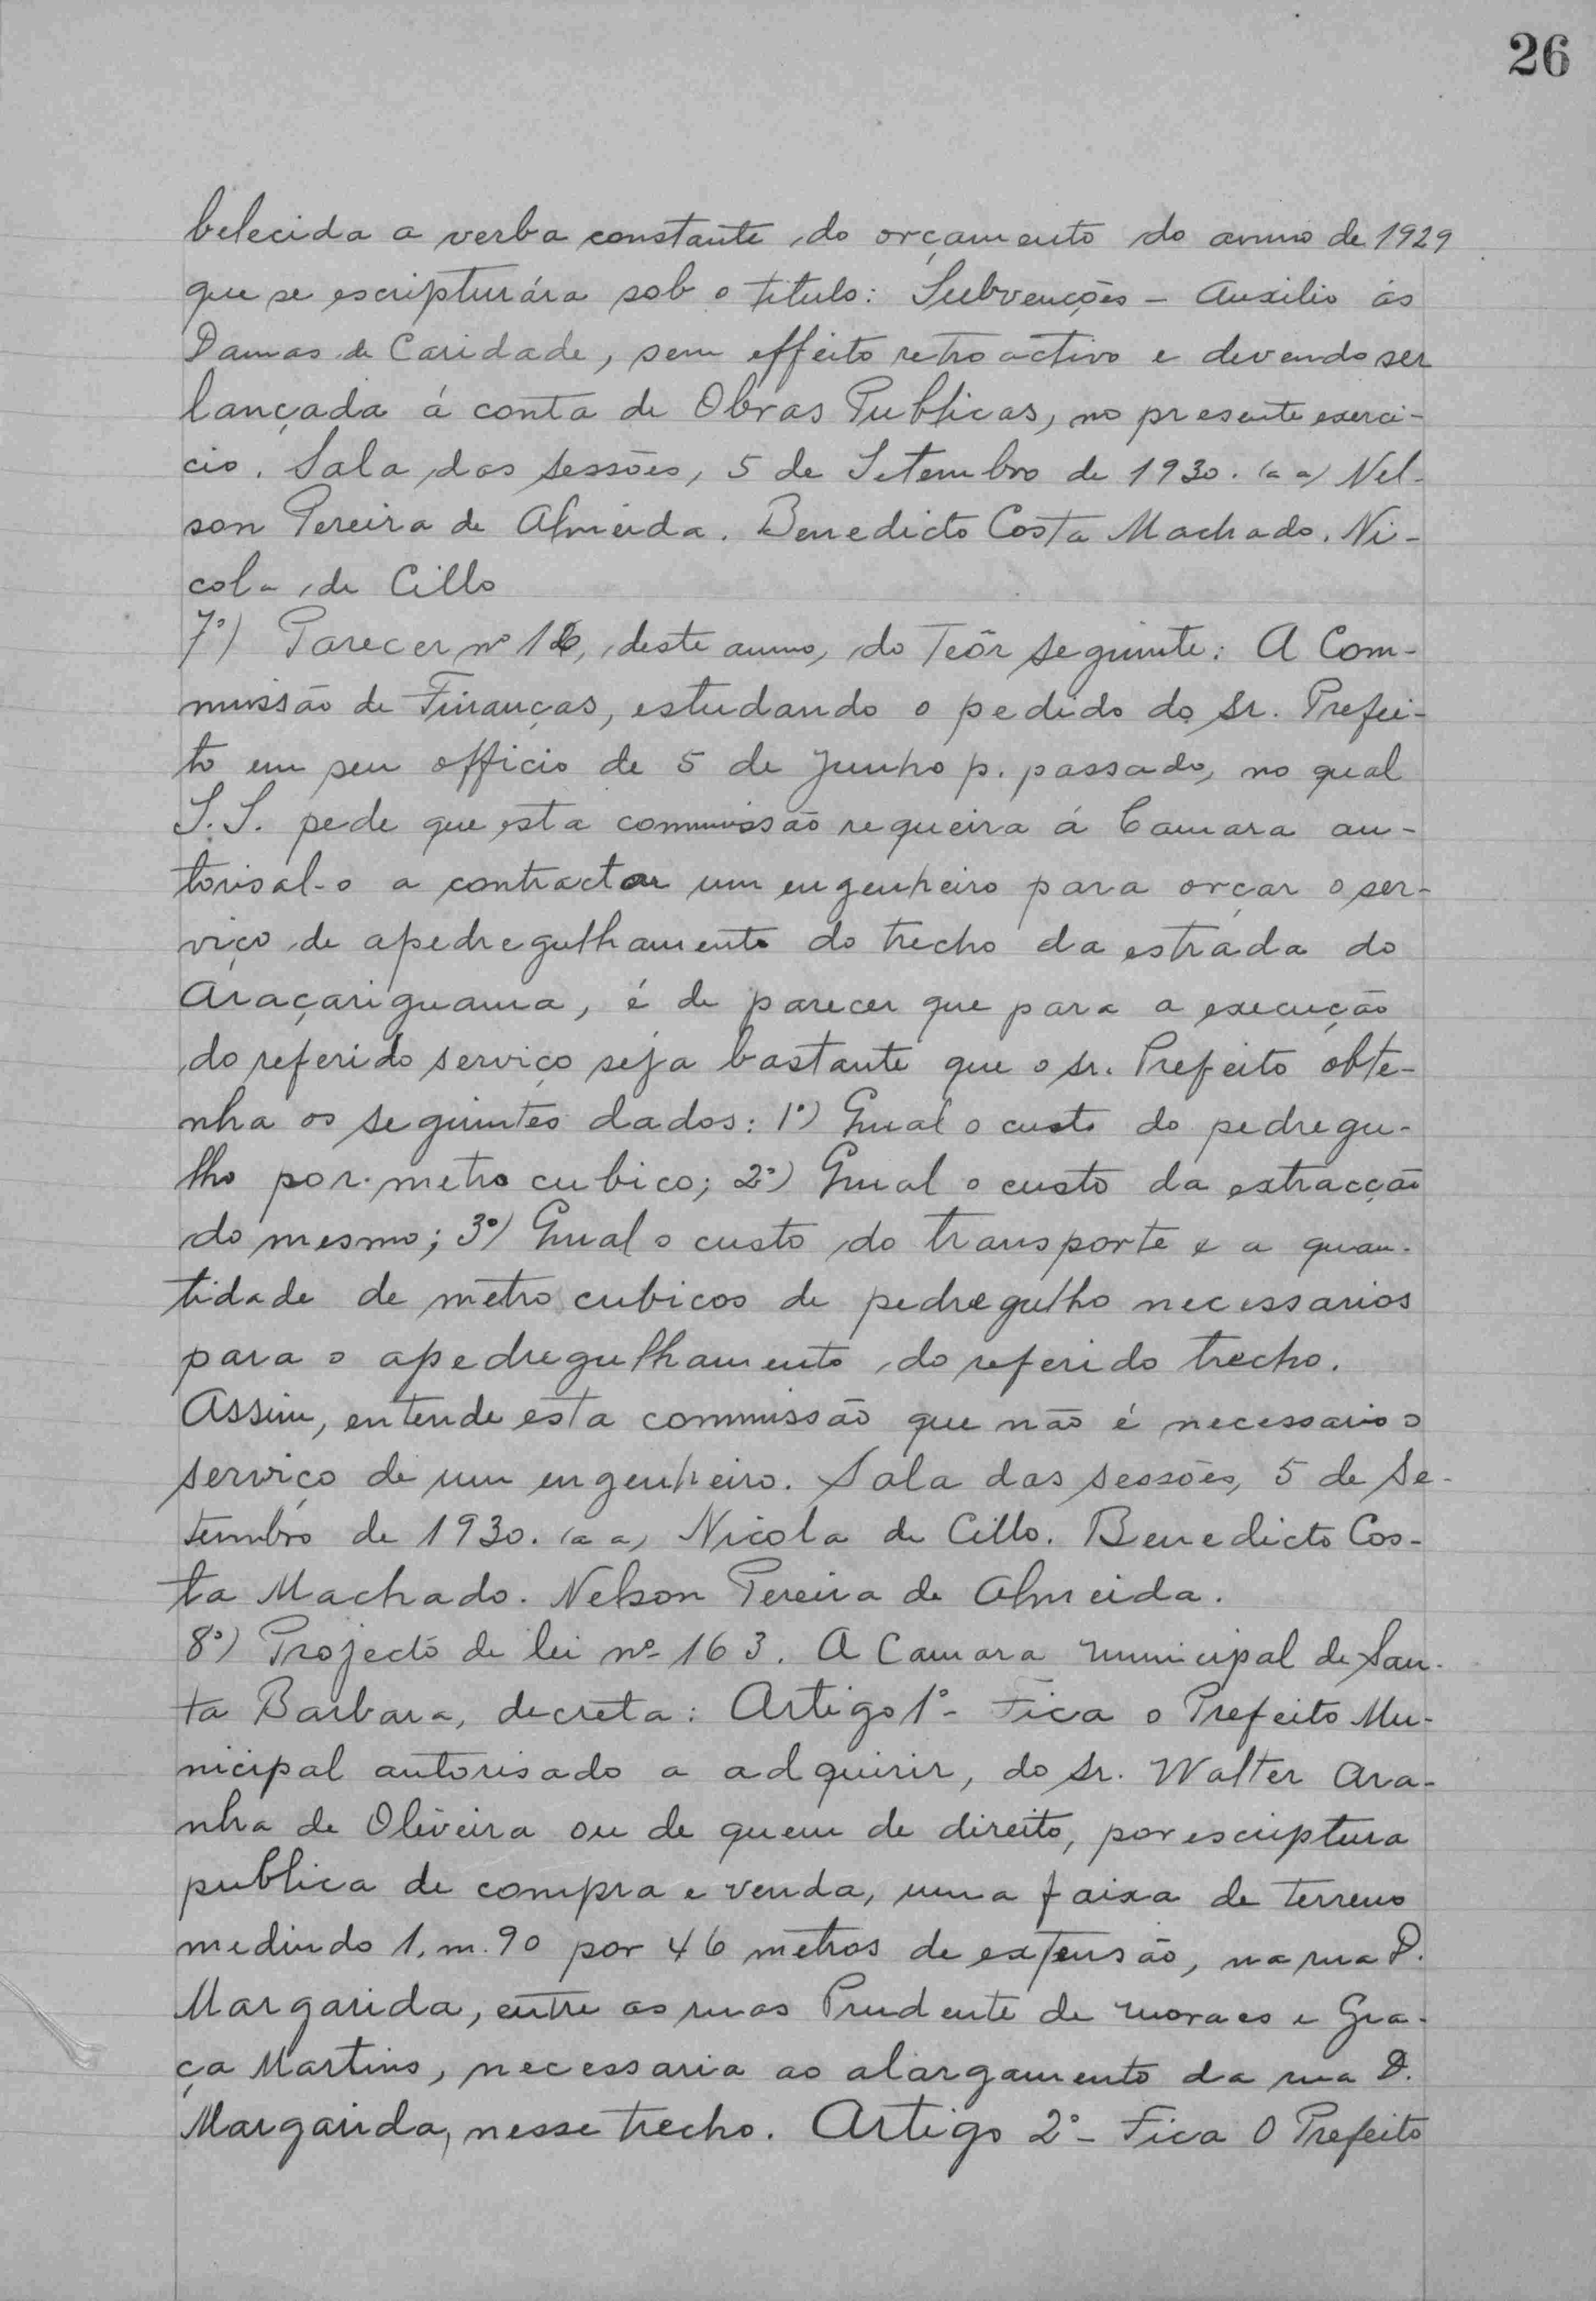 26
belecida a verba constante do orçamento do anno de 1929
que se escripturára sob o titulo: Subvenções - Auxilio ás
Damas de Caridade, sem effeito retroactivo e devendo ser
lançada á conta de Obras Publicas, no presente exerci-
cio. Sala das sessões, 5 de Setembro de 1930. (a a) Nel-
son Pereira de Almeida. Benedicto Costa Machado. Ni-
cola de Cillo
7º) Parecer nº 16, deste anno, do Teôr seguinte: A Com-
missão de Finanças, estudando o pedido do Sr. Prefei-
to em seu officio de 5 de Junho p. passado, no qual
S.S. pede que esta commissão requeira á Camara au-
torisal-o a contractar um engenheiro para orçar o ser-
viço de apedregulhamento do trecho da estrada do
Araçariguama, é de parecer que para a execução
do referido serviço seja bastante que o sr. Prefeito obte-
nha os seguintes dados: 1º) Qual o custo do pedregu-
lho por metro cubico; 2º) Qual o custo da extracção
do mesmo; 3º) Qual o custo do transporte e a quan-
tidade de metro cubicos de pedregulho necessarios
para o apedregulhamento do referido trecho.
Assim, entende esta commissão que não é necessario o
serviço de um engenheiro. Sala das sessões, 5 de Se-
tembro de 1930. (a a) Nicola de Cillo. Benedicto Cos-
ta Machado. Nelson Pereira de Almeida.
8º) Projecto de lei nº 163. A Camara Municipal de San-
ta Barbara, decreta: Artigo 1º - Fica o Prefeito Mu-
nicipal autorisado a adquirir, do Sr. Walter Ara-
nha de Oliveira ou de quem de direito, por escriptura
publica de compra e venda, uma faixa de terreno
medindo 1.m.90 por 46 metros de extensão, na rua D.
Margarida, entre as ruas Prudente de Moraes e Gra-
ça Martins, necessaria ao alargamento da rua D.
Margarida, nesse trecho. Artigo 2º - Fica O Prefeito